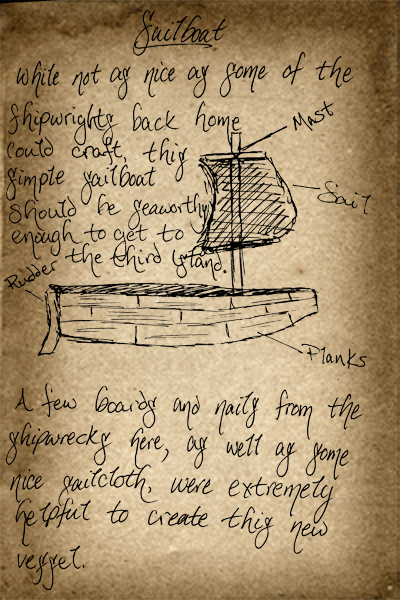 Sailboat
While not as nice as some of the
shipwrights back home
could craft, this
simple sailboat
should be seaworthy
enough to get to
the third island.
Mast
Sail
Rudder
Planks
A few boards and nails from the
shipwrecks here, as well as some
nice sailcloth, were extremely
helpful to create this new
vessel.